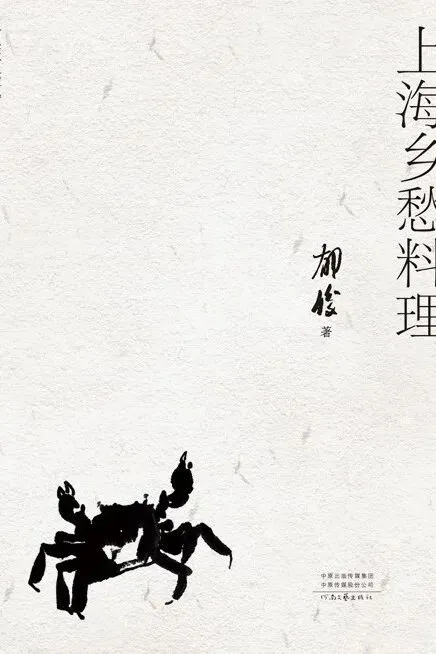 上海乡愁料理
郁俊
著
中原出版传媒集团
中原传媒股份公司
河南文艺出版社